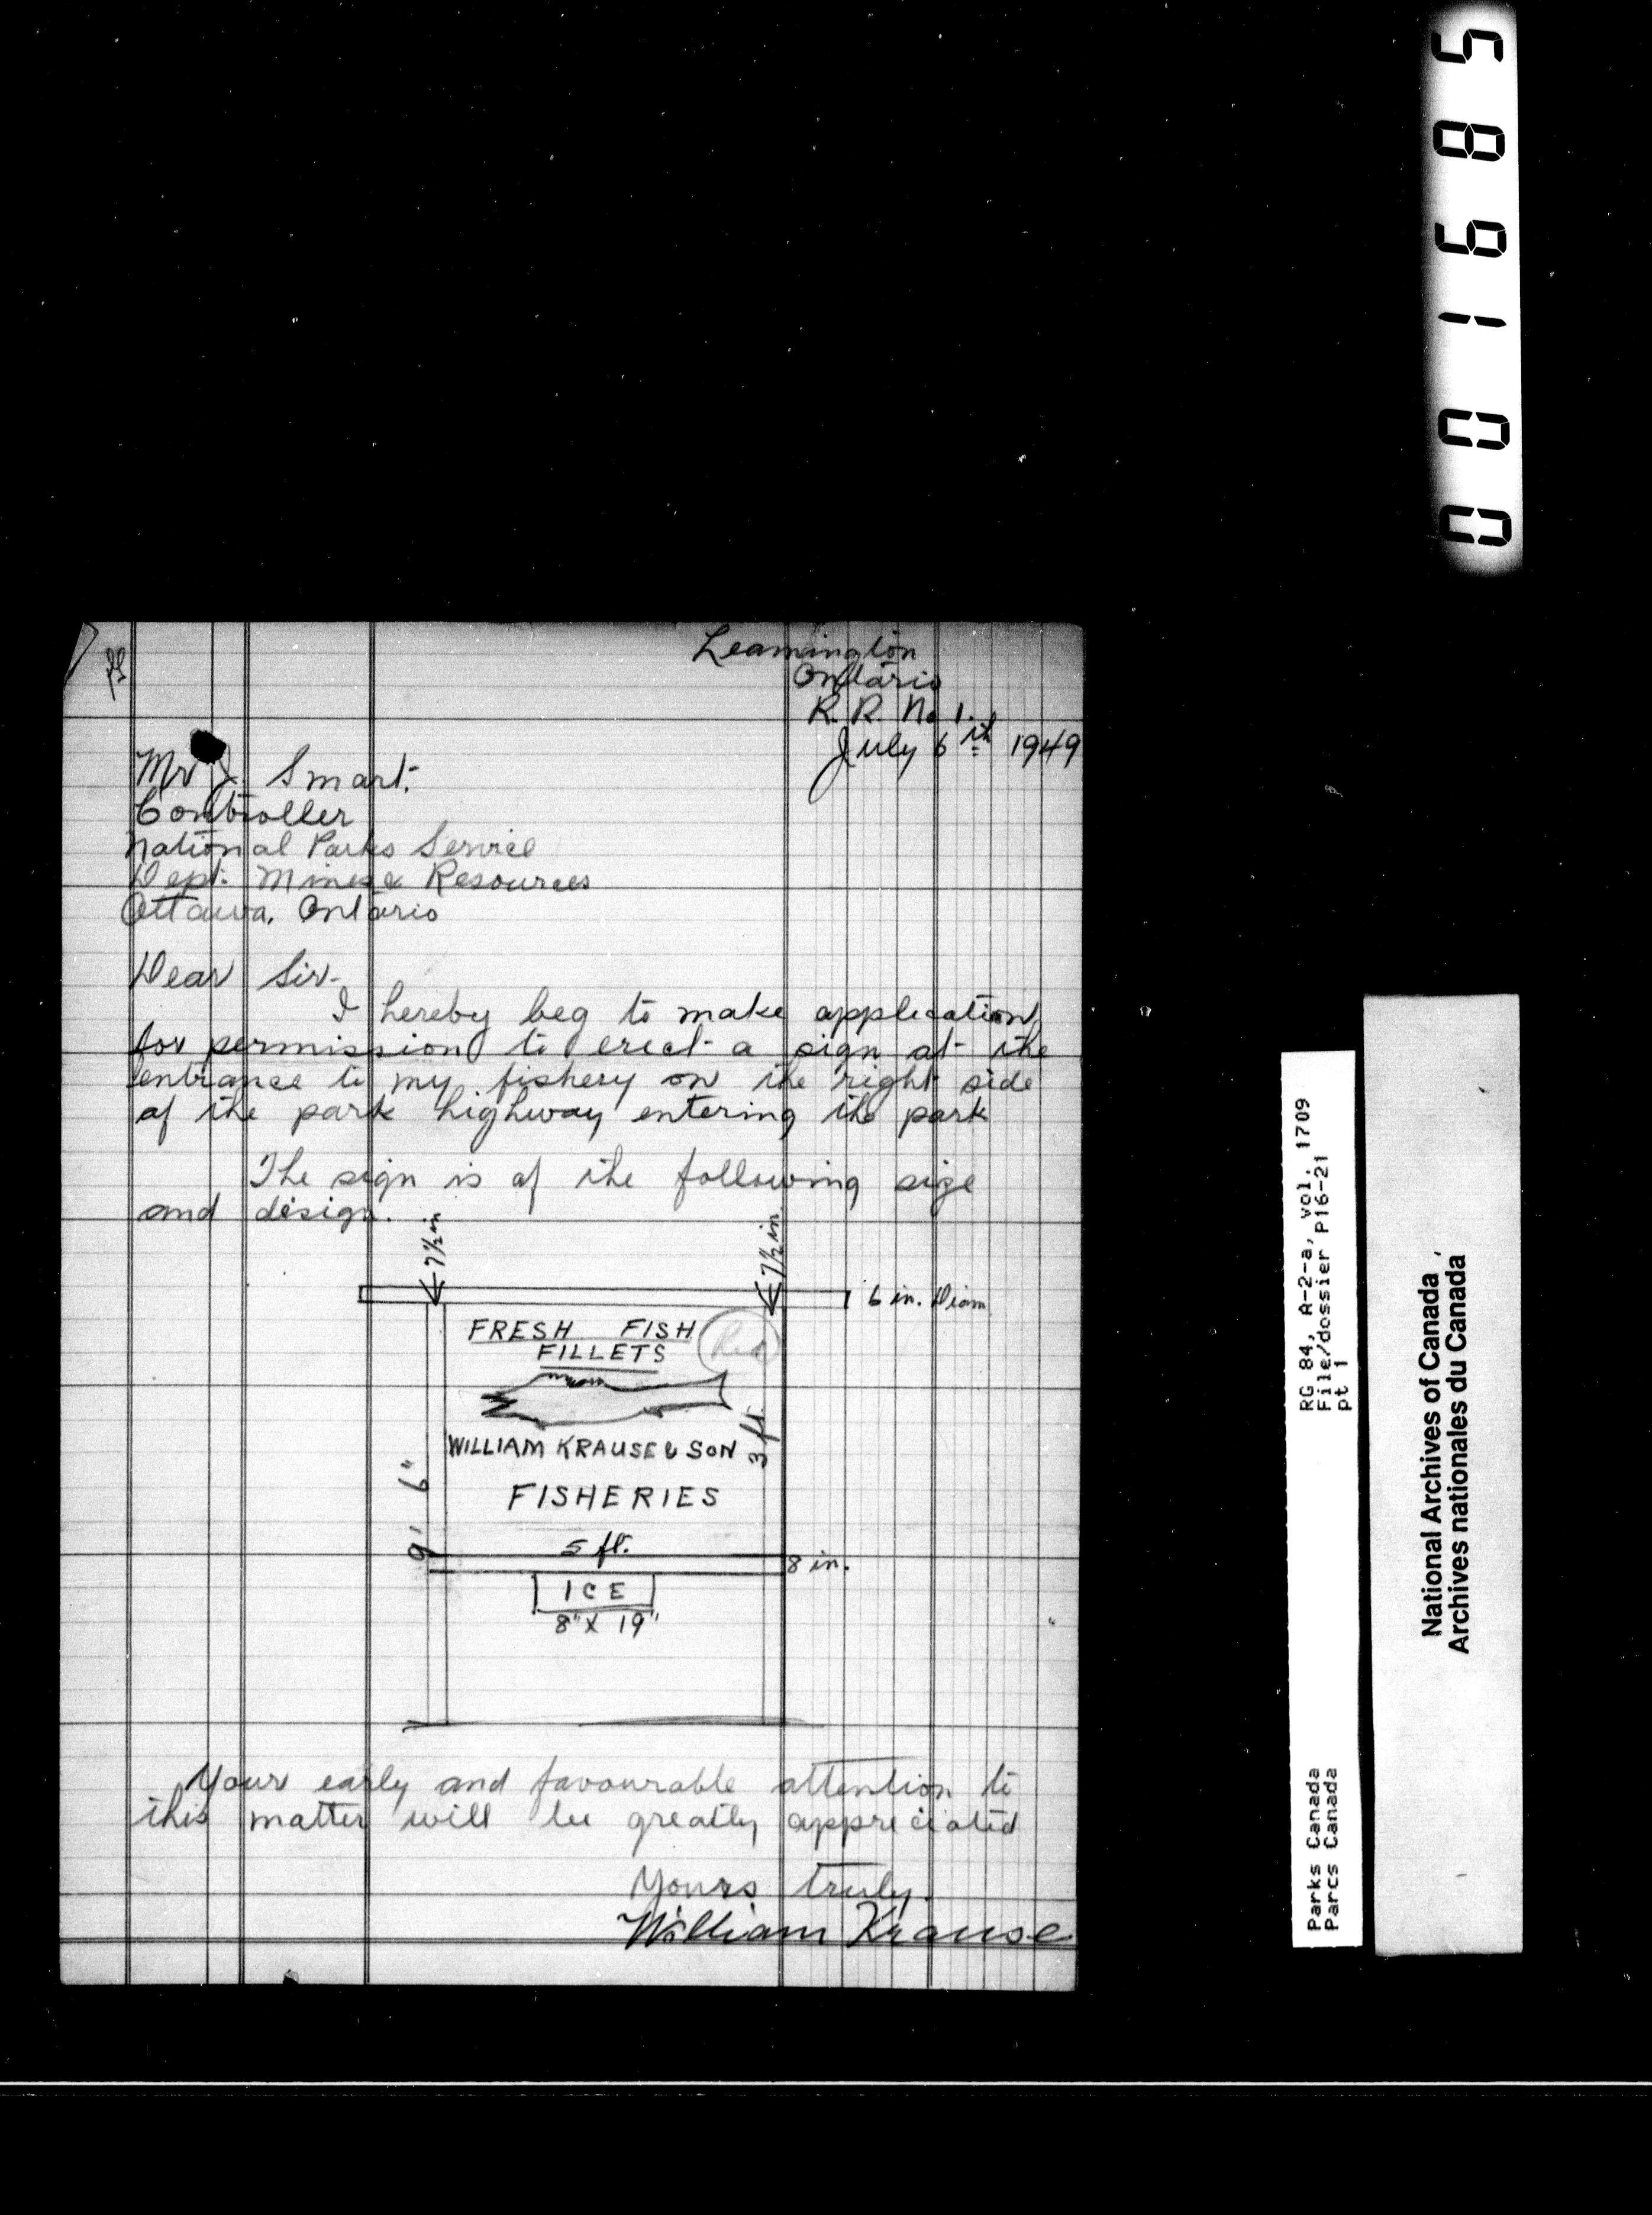 001685
Leamington
Ontario
R. R. No 1.
July 6th 1949
Mr J. Smart.
Controller
National Parks Service
Dept. Mines & Resources
Ottawa, Ontario
Dear Sir-
I hereby beg to make application
for permission to erect a sign at the
entrance to my fishery on the right side
of the park highway entering the park
The sign is of the following size
and design.
7½ in
7½ in.
6 in. Diam.
FRESH FISH
FILLETS
Red
3 ft.
WILLIAM KRAUSE & SON
FISHERIES
9' 6"
5 ft.
8 in.
ICE
8" X 19"
Your early and favourable attention to
this matter will be greatly appreciated
Yours truly.
William Krause
RG 84, A-2-a, vol. 1709
File/dossier P16-21
pt 1
Parks Canada
Parcs Canada
National Archives of Canada
Archives nationales du Canada